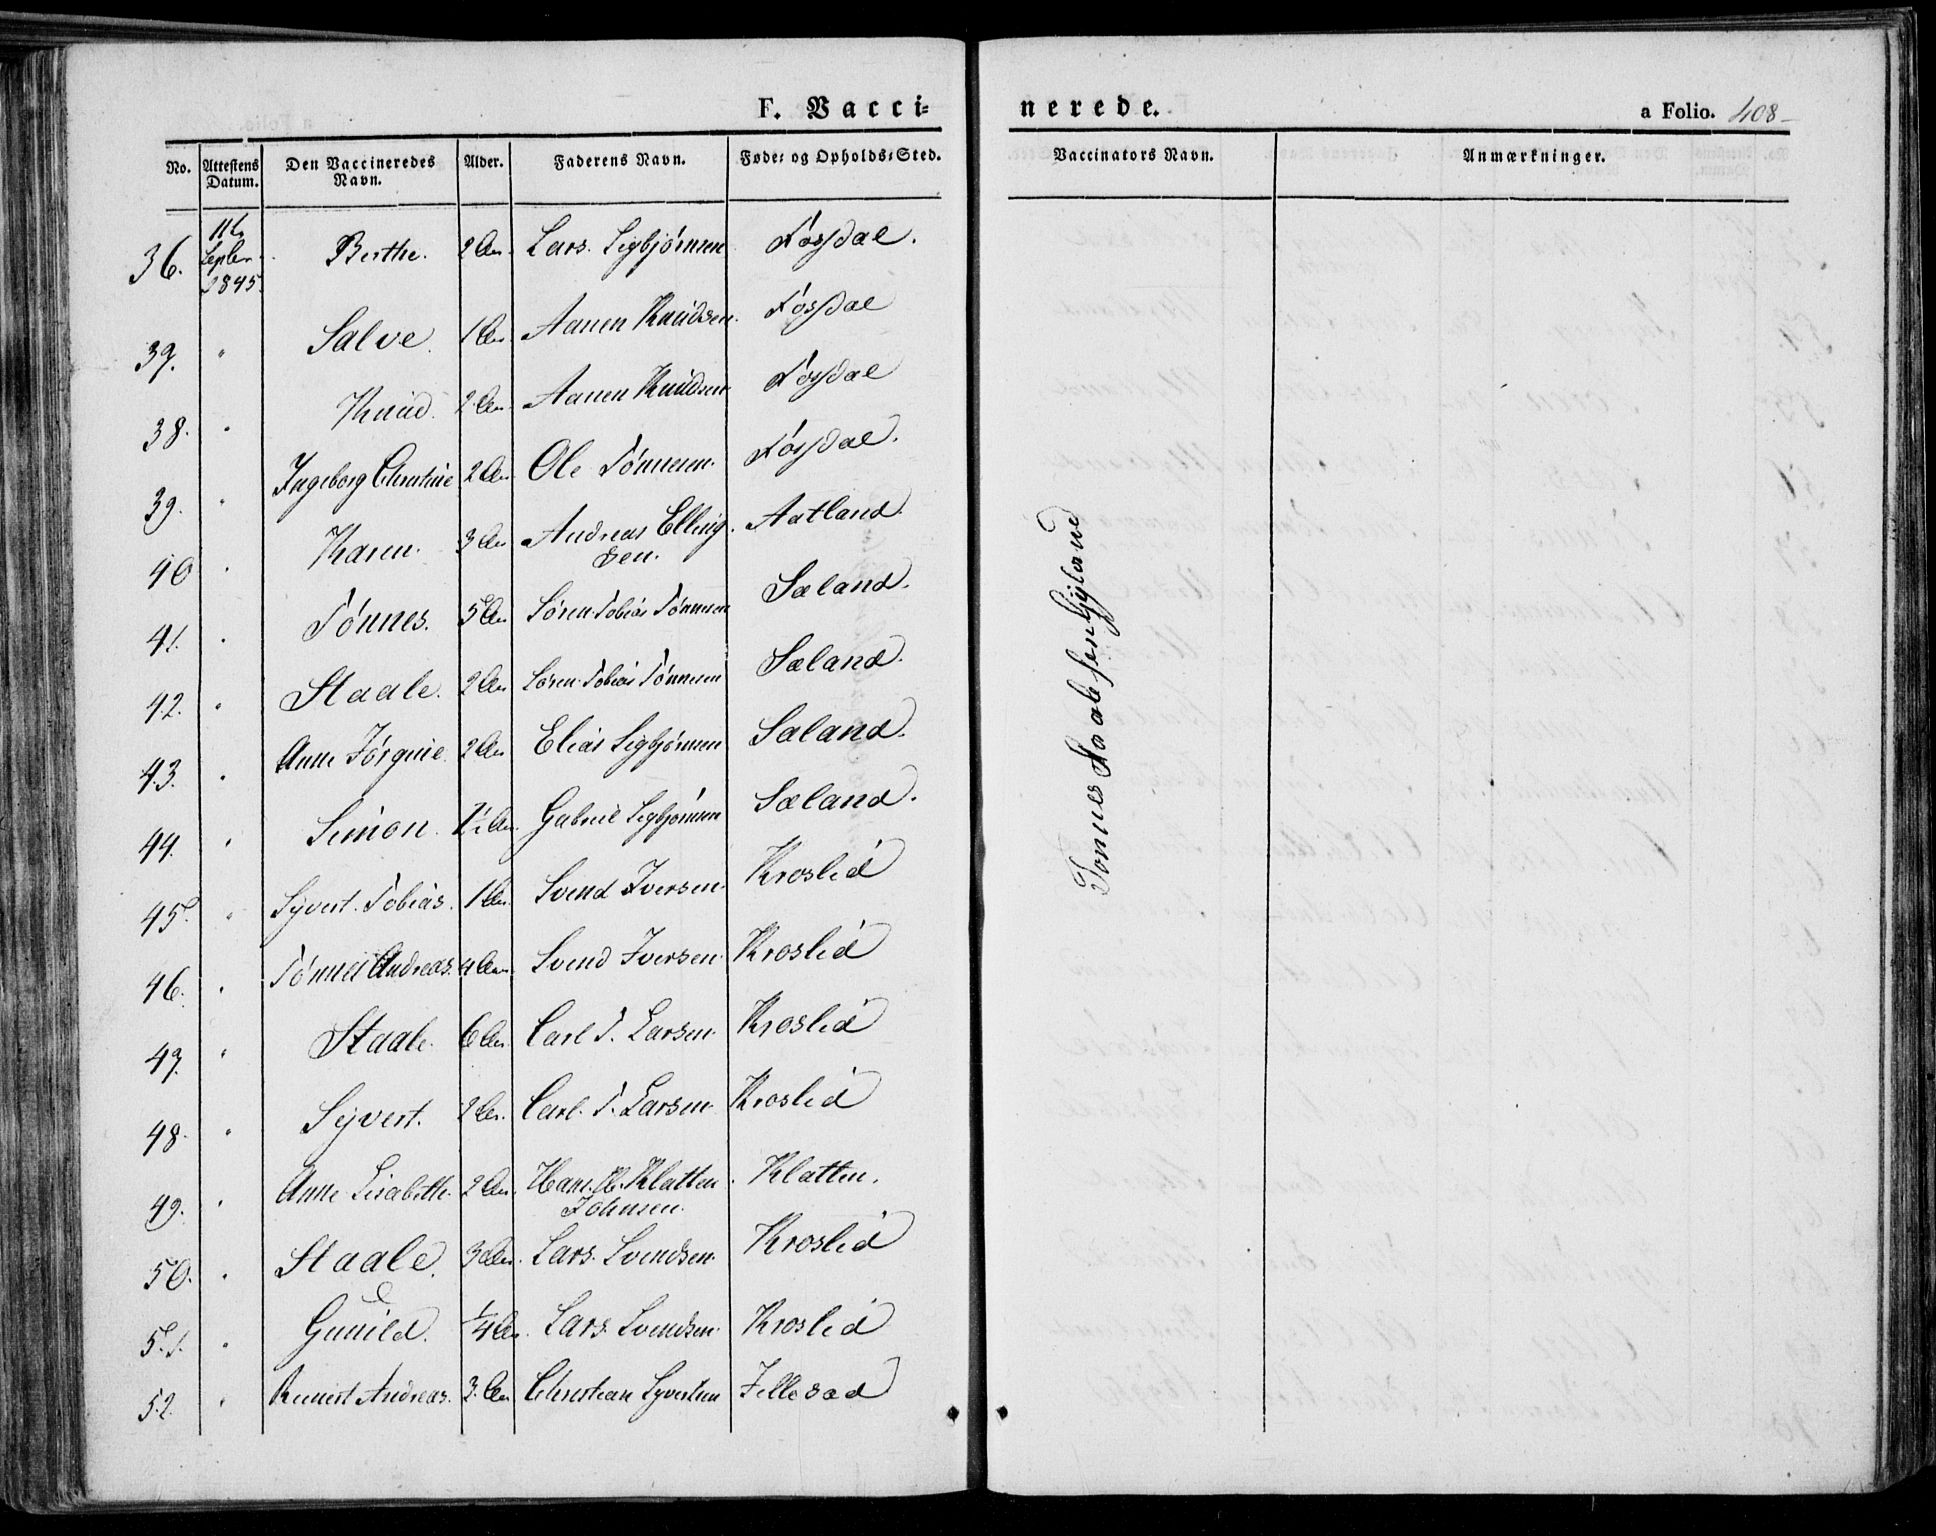 F. Vacci-
nerede.
a Folio. 408-
No. Attestens Datum. Den Vaccineredes Navn. Alder. Faderens Navn. Føde- og Opholds-Sted. Vaccinators Navn. Anmærkninger.
36. 11te Septbr 1845. Berthe. 2 Aar. Lars. Sigbjørnsen Fossdal.
37. " Salve. 1 Aar Aanen Knudsen. Fossdal
38. " Knud. 2 Aar. Aanen Knudsen Fossdal
39. " Ingeborg Christine 2 Aar Ole Tønnesen. Fossdal.
40 " Karen. 3 Aar Andreas Elling-
sen. Aatland.
41. " Tønnes. 5 Aar Søren Tobias Tønnesen Sæland.
42. " Staale. 2 Aar Søren Tobias Tønnesen Sæland.
43. " Anne Jørgine. 2 Aar Elias Sigbjørnsen Sæland.
44. " Simon. Aar. Gabriel Sigbjørnsen Sæland.
45. " Syvert. Tobias. 1 Aar. Svend Iversen. Kroslid
46. " Tønnes Andreas. 4 Aar. Svend Iversen. Kroslid
47. " Staale. 6 Aar. Carl T. Larsen. Kroslid
48. " Syvert. 2 Aar. Carl. T. Larsen. Kroslid
49. " Anne Lisabeth. 2 Aar. Hans Klatten
Johnsen. Klatten.
50. " Staale. 3 Aar. Lars. Svendsen. Kroslid
51. " Gunild. 1/4 Aar. Lars Svendsen. Kroslid
52. " Reinert Andreas. 3. Aar Christian Syvertsen Fillesad
Tønnes Staalesen Gyland